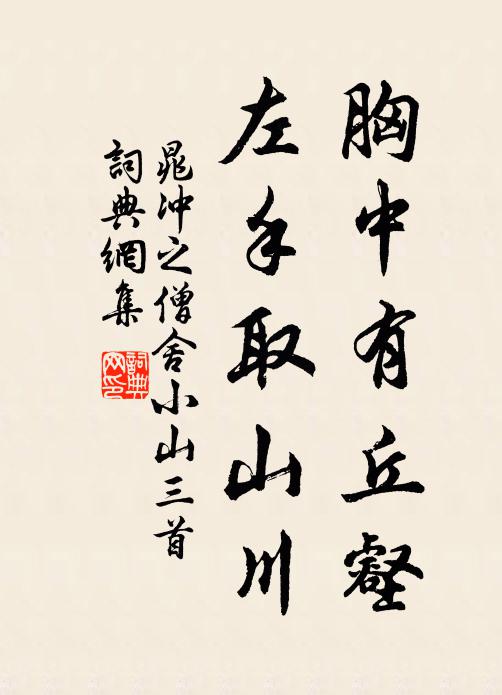 胸中有丘壑
左手取山川
晁冲之僧舍小山三首
詞典網集
詞典網印